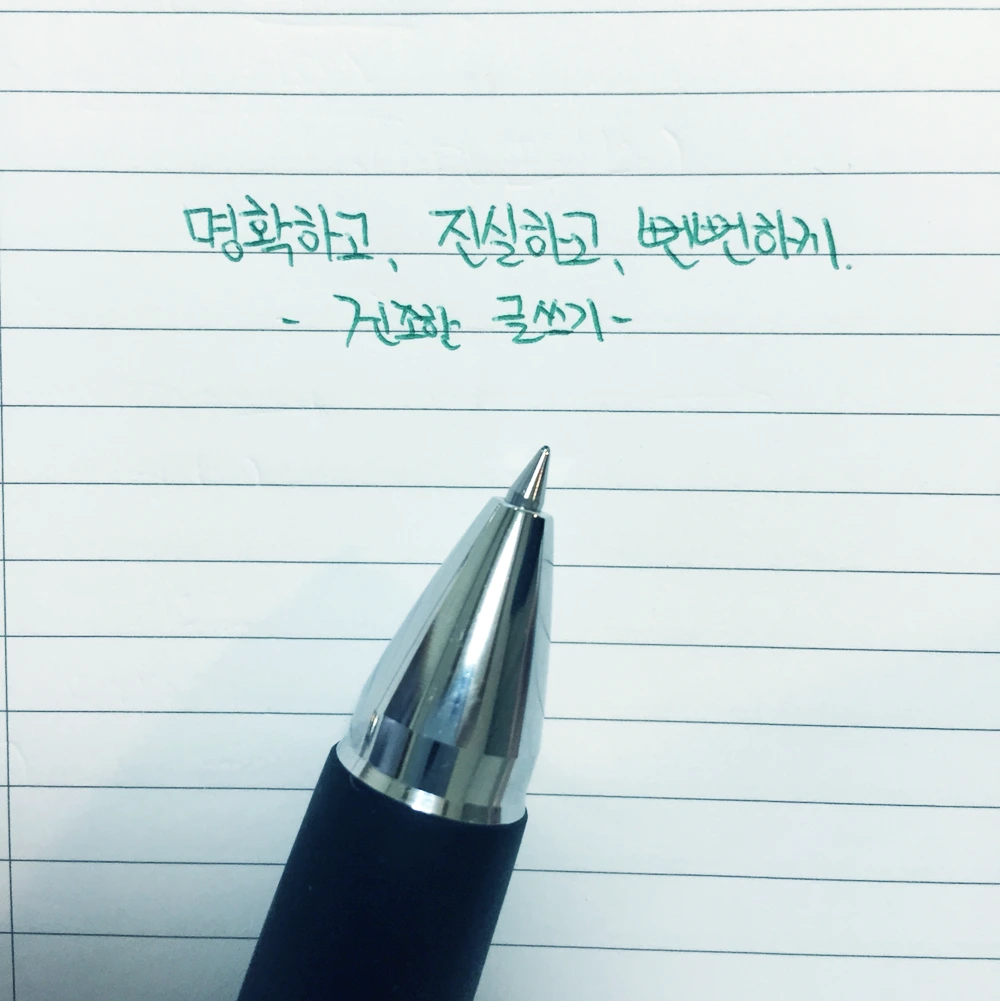 명확하고, 진실하고, 뻔뻔하게.
- 건조한 글쓰기 -